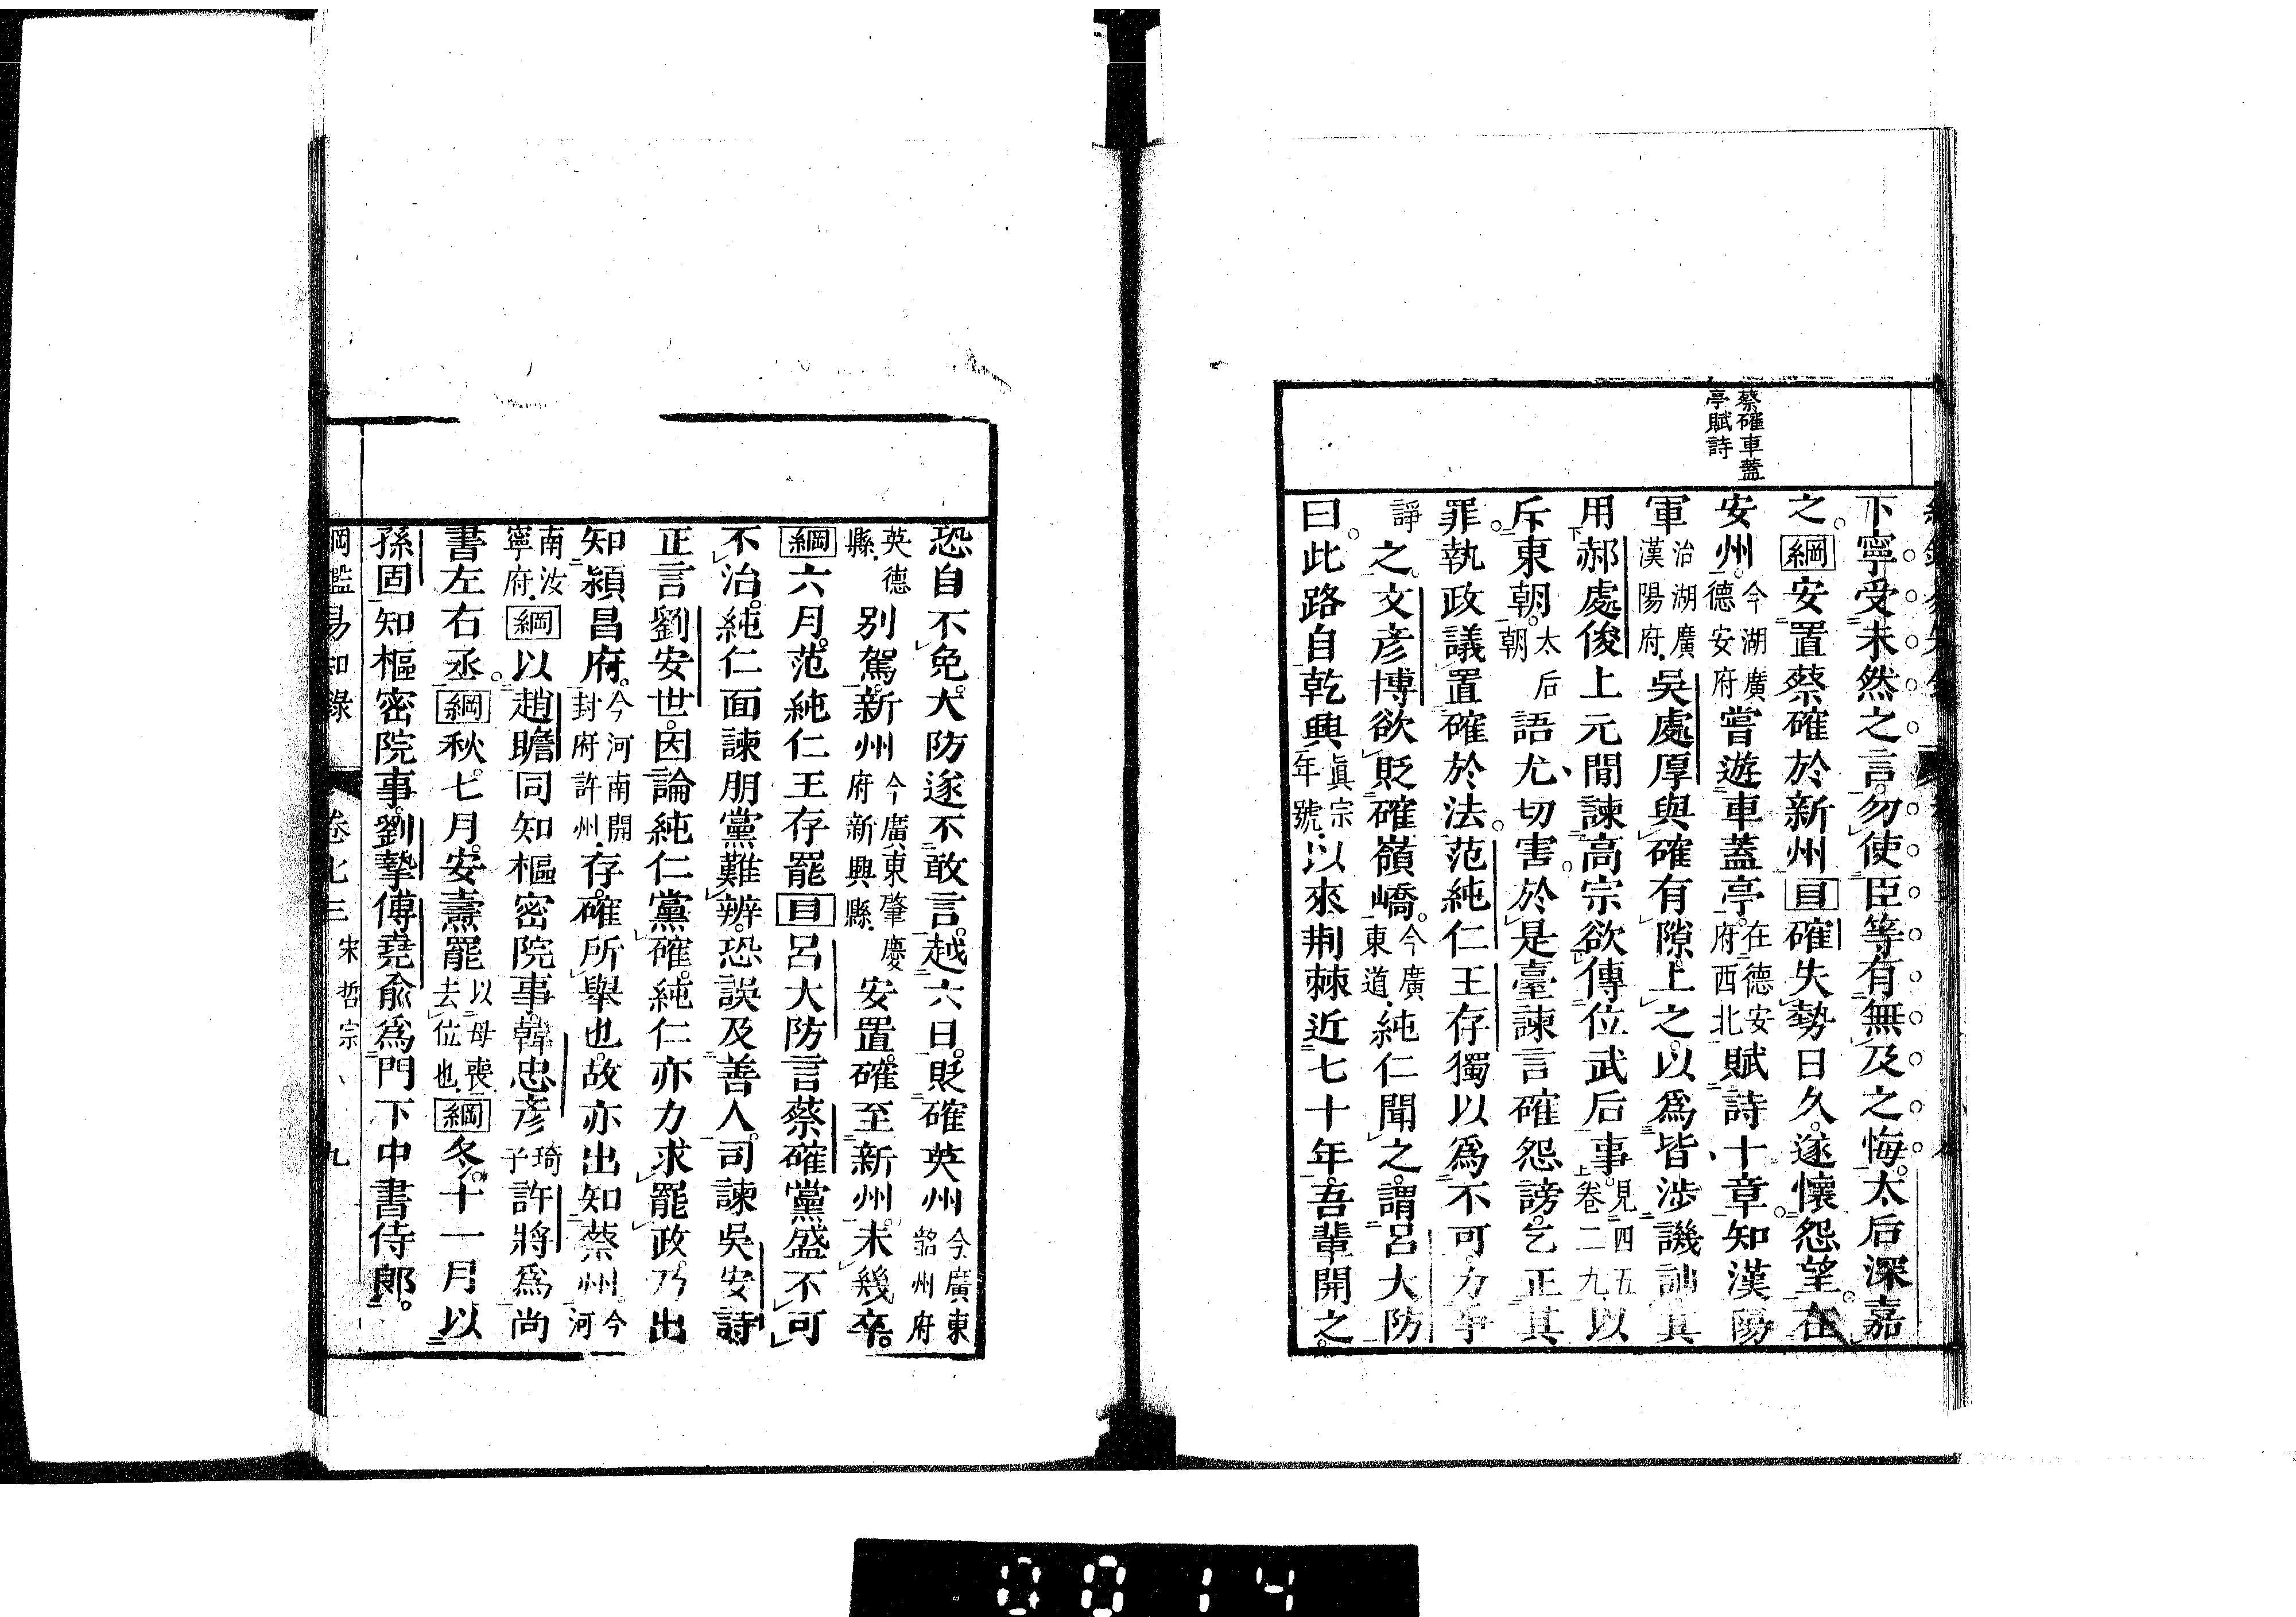 蔡確車蓋
亭賦詩
下寧受未然之言勿使臣等有無及之悔太后深嘉
之綱安置蔡確於新州目確失勢日久遂懷怨望在
安州今湖廣德安府嘗遊車蓋亭在德安府西北賦詩十章知漢陽
軍治湖廣漢陽府吳處厚與確有隙上之以爲皆涉譏訕其
用郝處俊上元間諫高宗欲傳位武后事見四五上卷二九以
斥東朝太后朝語尤切害於是臺諫言確怨謗乞正其
罪執政議置確於法范純仁王存獨以爲不可力爭
諍之文彥博欲貶確嶺嶠今廣東道純仁聞之謂呂大防
曰此路自乾興眞宗年號以來荆棘近七十年吾輩開之
恐自不免大防遂不敢言越六日貶確英州今廣東韶州府
英德縣別駕新州今廣東肇慶府新興縣安置確至新州未幾卒
綱六月范純仁王存罷目呂大防言蔡確黨盛不可
不治純仁面諫朋黨難辨恐誤及善人司諫吳安詩
正言劉安世因論純仁黨確純仁亦力求罷政乃出
知潁昌府今河南開封府許州存確所舉也故亦出知蔡州今河
南汝寧府綱以趙瞻同知樞密院事韓忠彥琦子許將爲尚
書左右丞綱秋七月安燾罷以母喪去位也綱冬十一月以
孫固知樞密院事劉摯傅堯俞爲門下中書侍郎
綱鑑易知錄 卷七三 宋哲宗 九
0014